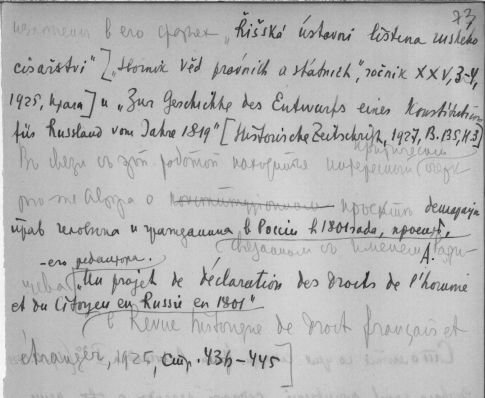 73
изложены в его „Říšská ústavní listina ruského
císařství” [„Sborník věd právních a státních”, ročník XXV, 3-4,
1925, Прага] и „Zur Geschichte des Entwurfs eines Konstitution
für Russland vom Jahre 1819” [Historische Zeitschrift, 1927, B. 135, H.3]
критический
В связи с этой работой находится интересный очерк
того же автора о конституционном проекте декларации
прав человека и гражданина, в России в 1801 года, проект,
связанном с именем А. Ради-
-его редактора.
щева „Un projet de déclaration des droits de l'homme
et du citoyen en Russie en 1801”
в Revue historique de droit français et
étranger, 1925, стр. 436-445]